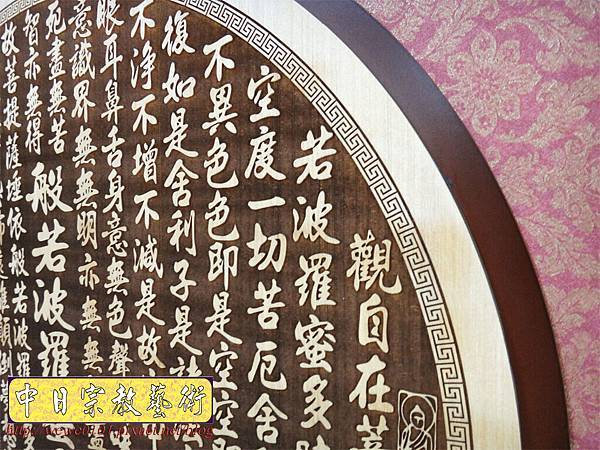 觀自在菩
若波羅蜜多時
空度一切苦厄舍
不異色色即是空空
復如是舍利子是諸
不淨不增不減是故
眼耳鼻舌身意無色聲
意識界無無明亦無無
死盡無苦
智亦無得
般若波羅
故菩提薩埵依般若波羅
中日宗教藝術